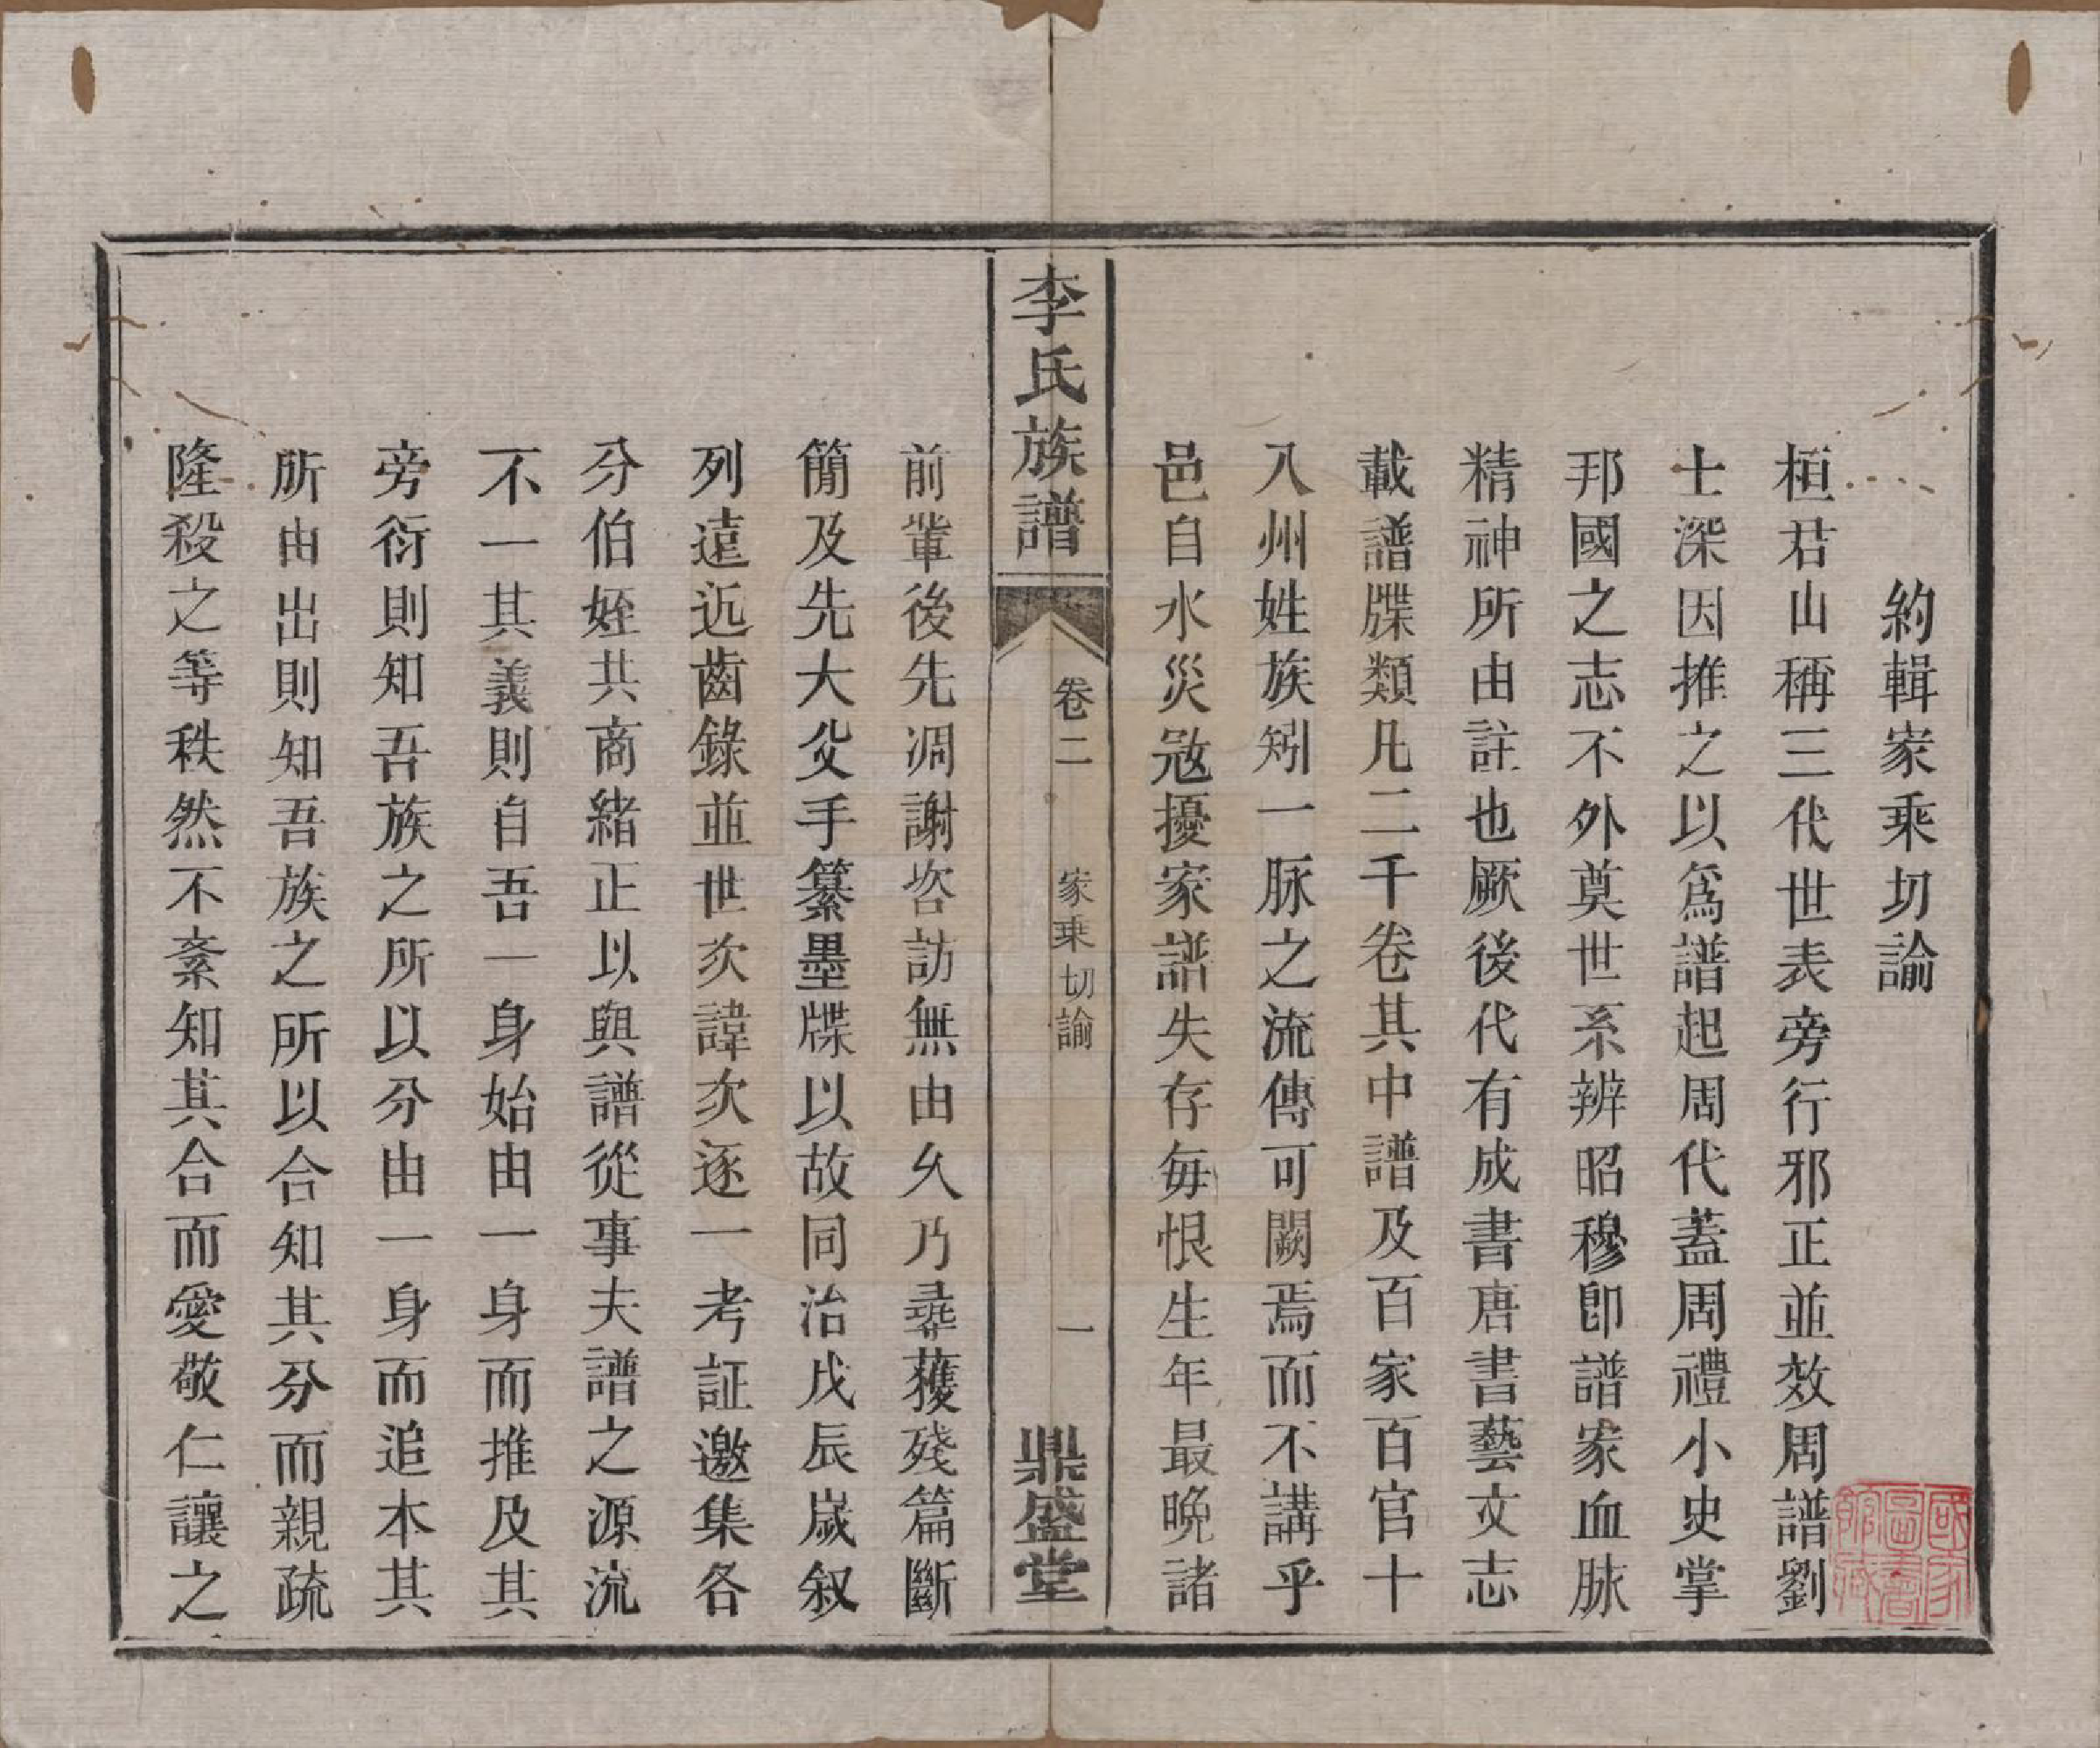 約輯家乘切論
桓君山稱三代世表旁行邪正並效周譜劉
士深因推之以為譜起周代蓋周禮小史掌
邦國之志不外奠世系辨昭穆卽譜家血脉
精神所由註也厥後代有成書唐書藝文志
載譜牒類凡二千卷其中譜及百家百官十
八州姓族矧一脉之流傳可闕焉而不講乎
邑自水災㓂擾家譜失存每恨生年最晚諸
李氏族譜
卷二
家乘切論
一
鼎盛堂
前輩後先凋謝咨訪無由乆乃尋獲殘篇斷
簡及先大父手纂墨牒以故同治戊辰歲叙
列遠近齒錄並世次諱次逐一考証邀集各
分伯姪共商緒正以與譜從事夫譜之源流
不一其義則自吾一身始由一身而推及其
旁衍則知吾族之所以分由一身而追本其
所由出則知吾族之所以合知其分而親疏
隆殺之等秩然不紊知其合而愛敬仁讓之
國家圖書館藏